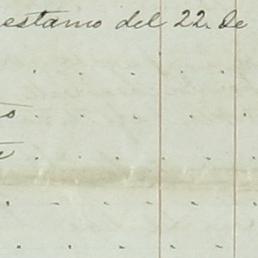 estamo del 22. de